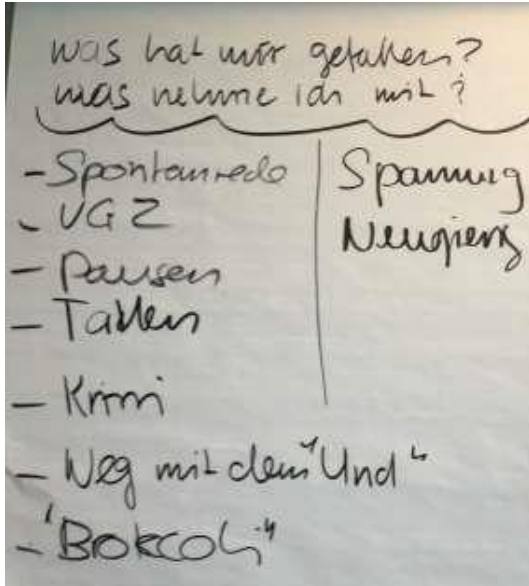 was hat mir gefallen?
was nehme ich mit?
- Spontanrede
- VGZ
- Pausen
-
- Krimi
- Weg mit dem "Und"
- "Brokkoli"
Spannung
Neugierig